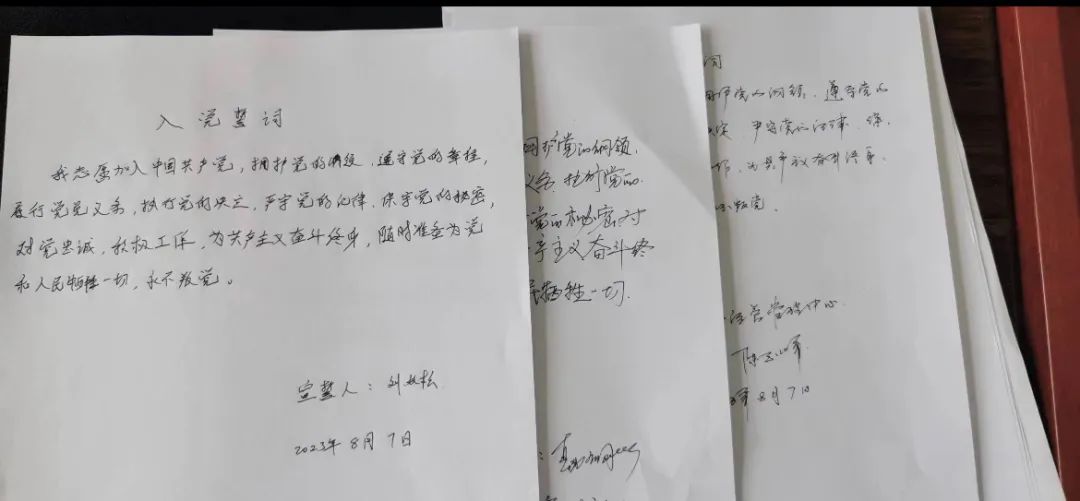 入党誓词
我志愿加入中国共产党，拥护党的纲领，遵守党的章程，
履行党员义务，执行党的决定，严守党的纪律，保守党的秘密，
对党忠诚，积极工作，为共产主义奋斗终身，随时准备为党
和人民牺牲一切，永不叛党。
宣誓人：刘
2023年8月7日
拥护党的纲领
义务，执行党的
党的秘密，对
主义奋斗终
牺牲一切.
词
拥护党的纲领、遵守党的
决定、严守党的纪律、保
作、为共产主义奋斗终身、
永不叛党.
管理中心
陈
年8月7日